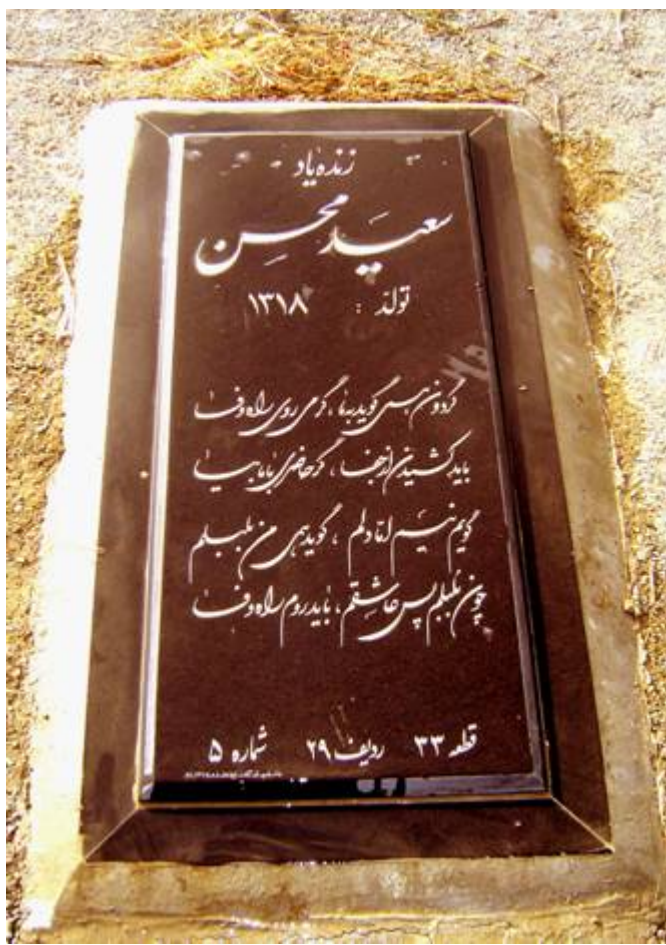 زنده یاد
سعید محسن
تولد : ۱۳۱۸
گردون همی گوید به ما ، گر می روی راه وفا
باید کشیدن از جفا ، گر حاضری با ما بیا
گویم نیم اما دلم ، گوید همی من بلبلم
چون بلبلم پس عاشقم ، باید روم راه وفا
قطعه ۳۳ ردیف ۲۹ شماره ۵